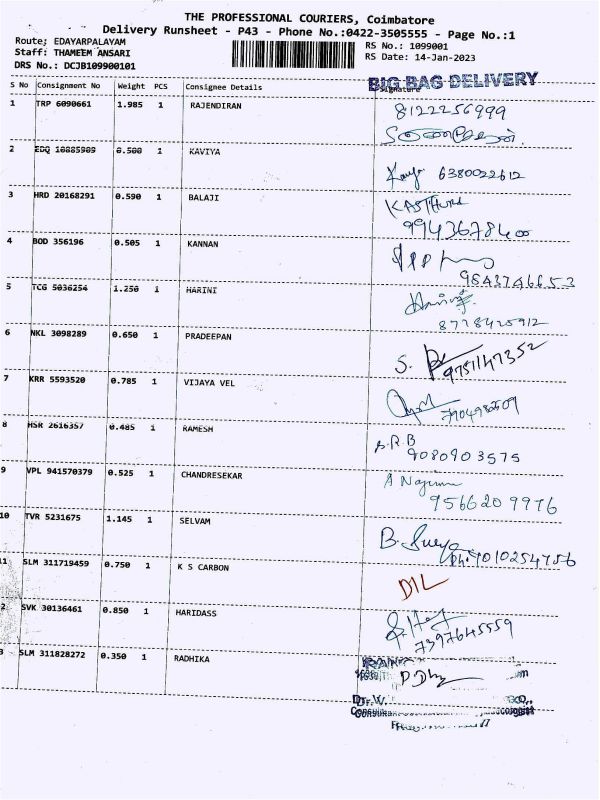 THE PROFESSIONAL COURIERS, Coimbatore
Delivery Runsheet - P43 - Phone No.:0422-3505555 - Page No.:1
Route; EDAYARPALAYAM
Staff: THAMEEM ANSARI
DRS No.: DCJB109900101
RS No.: 1099001
RS Date: 14-Jan-2023
BIG BAG DELIVERY
S No Consignment No Weight PCS Consignee Details Signature
1 TRP 6090661 1.985 1 RAJENDIRAN 81222256999
2 EDQ 10885909 0.500 1 KAVIYA 6380022612
3 HRD 20168291 0.590 1 BALAJI KASTHURI
9943678400
4 BOD 356196 0.505 1 KANNAN
9843746653
5 TCG 5036254 1.250 1 HARINI
8778425912
6 NKL 3098289 0.650 1 PRADEEPAN S.
9751147352
7 KRR 5593520 0.785 1 VIJAYA VEL
7904982509
8 HSR 2616357 0.485 1 RAMESH S.R.B
9080903575
9 VPL 941570379 0.525 1 CHANDRESEKAR A
9566209976
10 TVR 5231675 1.145 1 SELVAM B.
Ph:
11 SLM 311719459 0.750 1 K S CARBON DIL
2 SVK 30136461 0.850 1 HARIDASS
7397645559
3 SLM 311828272 0.350 1 RADHIKA
Dr.W.